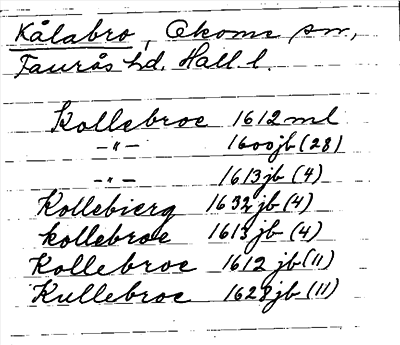 Kålabro, Okome sn,
Faurås hd. Hall. l.
Kollebroe 1612 ml
—"— 1600 jb (28)
—"— 1613 jb (4)
Kollebierg 1632 jb (4)
kollebroe 1613 jb (4)
Kollebroe 1612 jb (11)
Kullebroe 1628 jb (11)